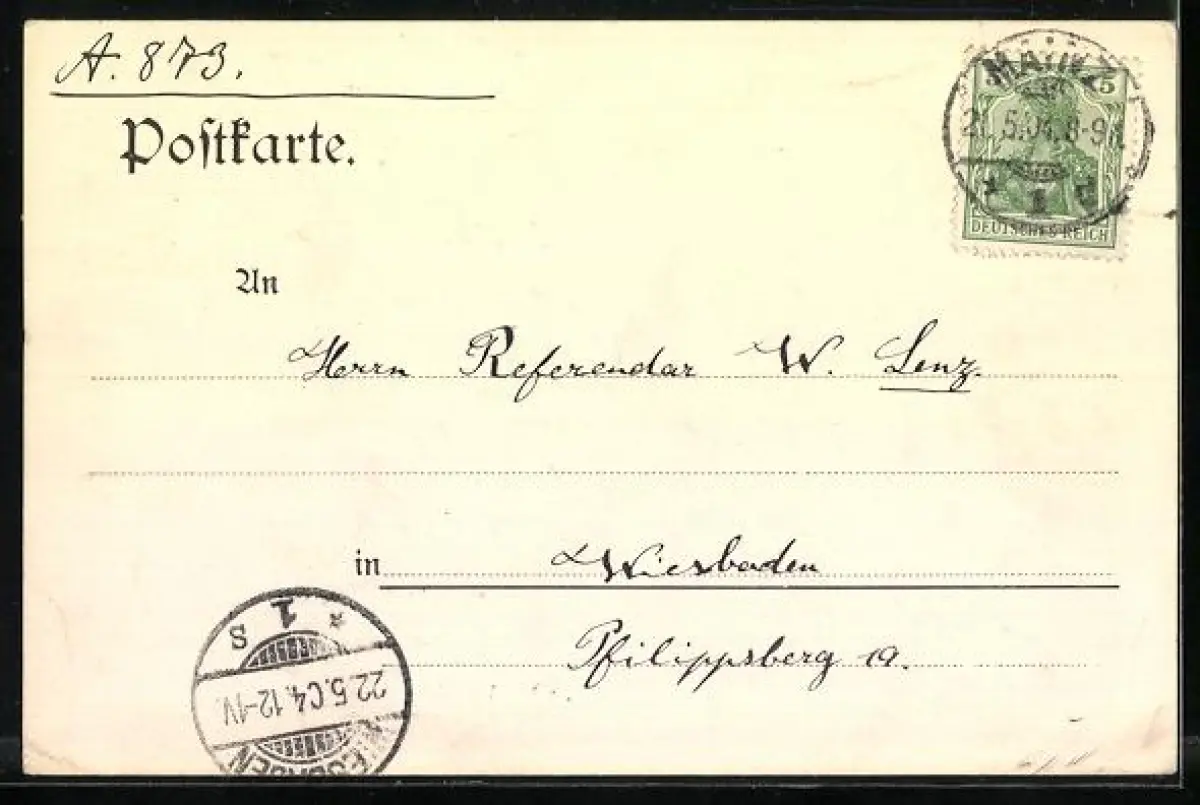 A. 873.
Postkarte.
MAINZ
5 5
21.5.04. 8-9
1
DEUTSCHES REICH
An
Herrn Referendar W. Lenz.
in Wiesbaden
Philippsberg
* 1 S
22.5.04.12-1V.
WIESBADEN